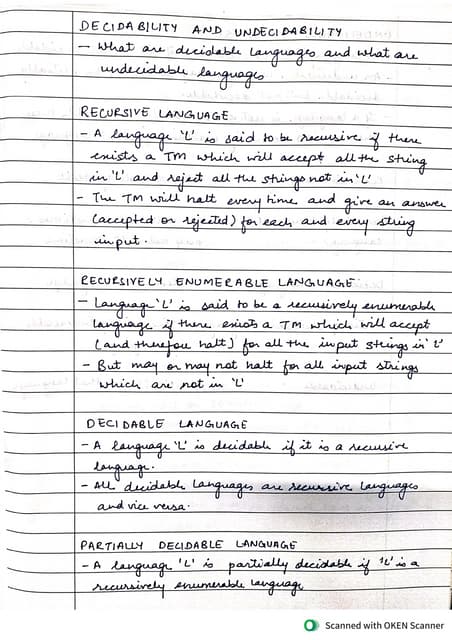 DECIDABILITY AND UNDECIDABILITY
- What are decidable languages and what are
undecidable languages
RECURSIVE LANGUAGE
- A language 'L' is said to be recursive if there
exists a TM which will accept all the string
in 'L' and reject all the strings not in 'L'
- The TM will halt every time and give an answer
(accepted or rejected) for each and every string
input.
RECURSIVELY ENUMERABLE LANGUAGE
- Language 'L' is said to be a recursively enumerable
language if there exists a TM which will accept
(and therefore halt) for all the input strings in 'L'
- But may or may not halt for all input strings
which are not in 'L'
DECIDABLE LANGUAGE
- A language 'L' is decidable if it is a recursive
language.
- All decidable languages are recursive languages
and vice versa.
PARTIALLY DECIDABLE LANGUAGE
- A language 'L' is partially decidable if 'L' is a
recursively enumerable language
Scanned with OKEN Scanner